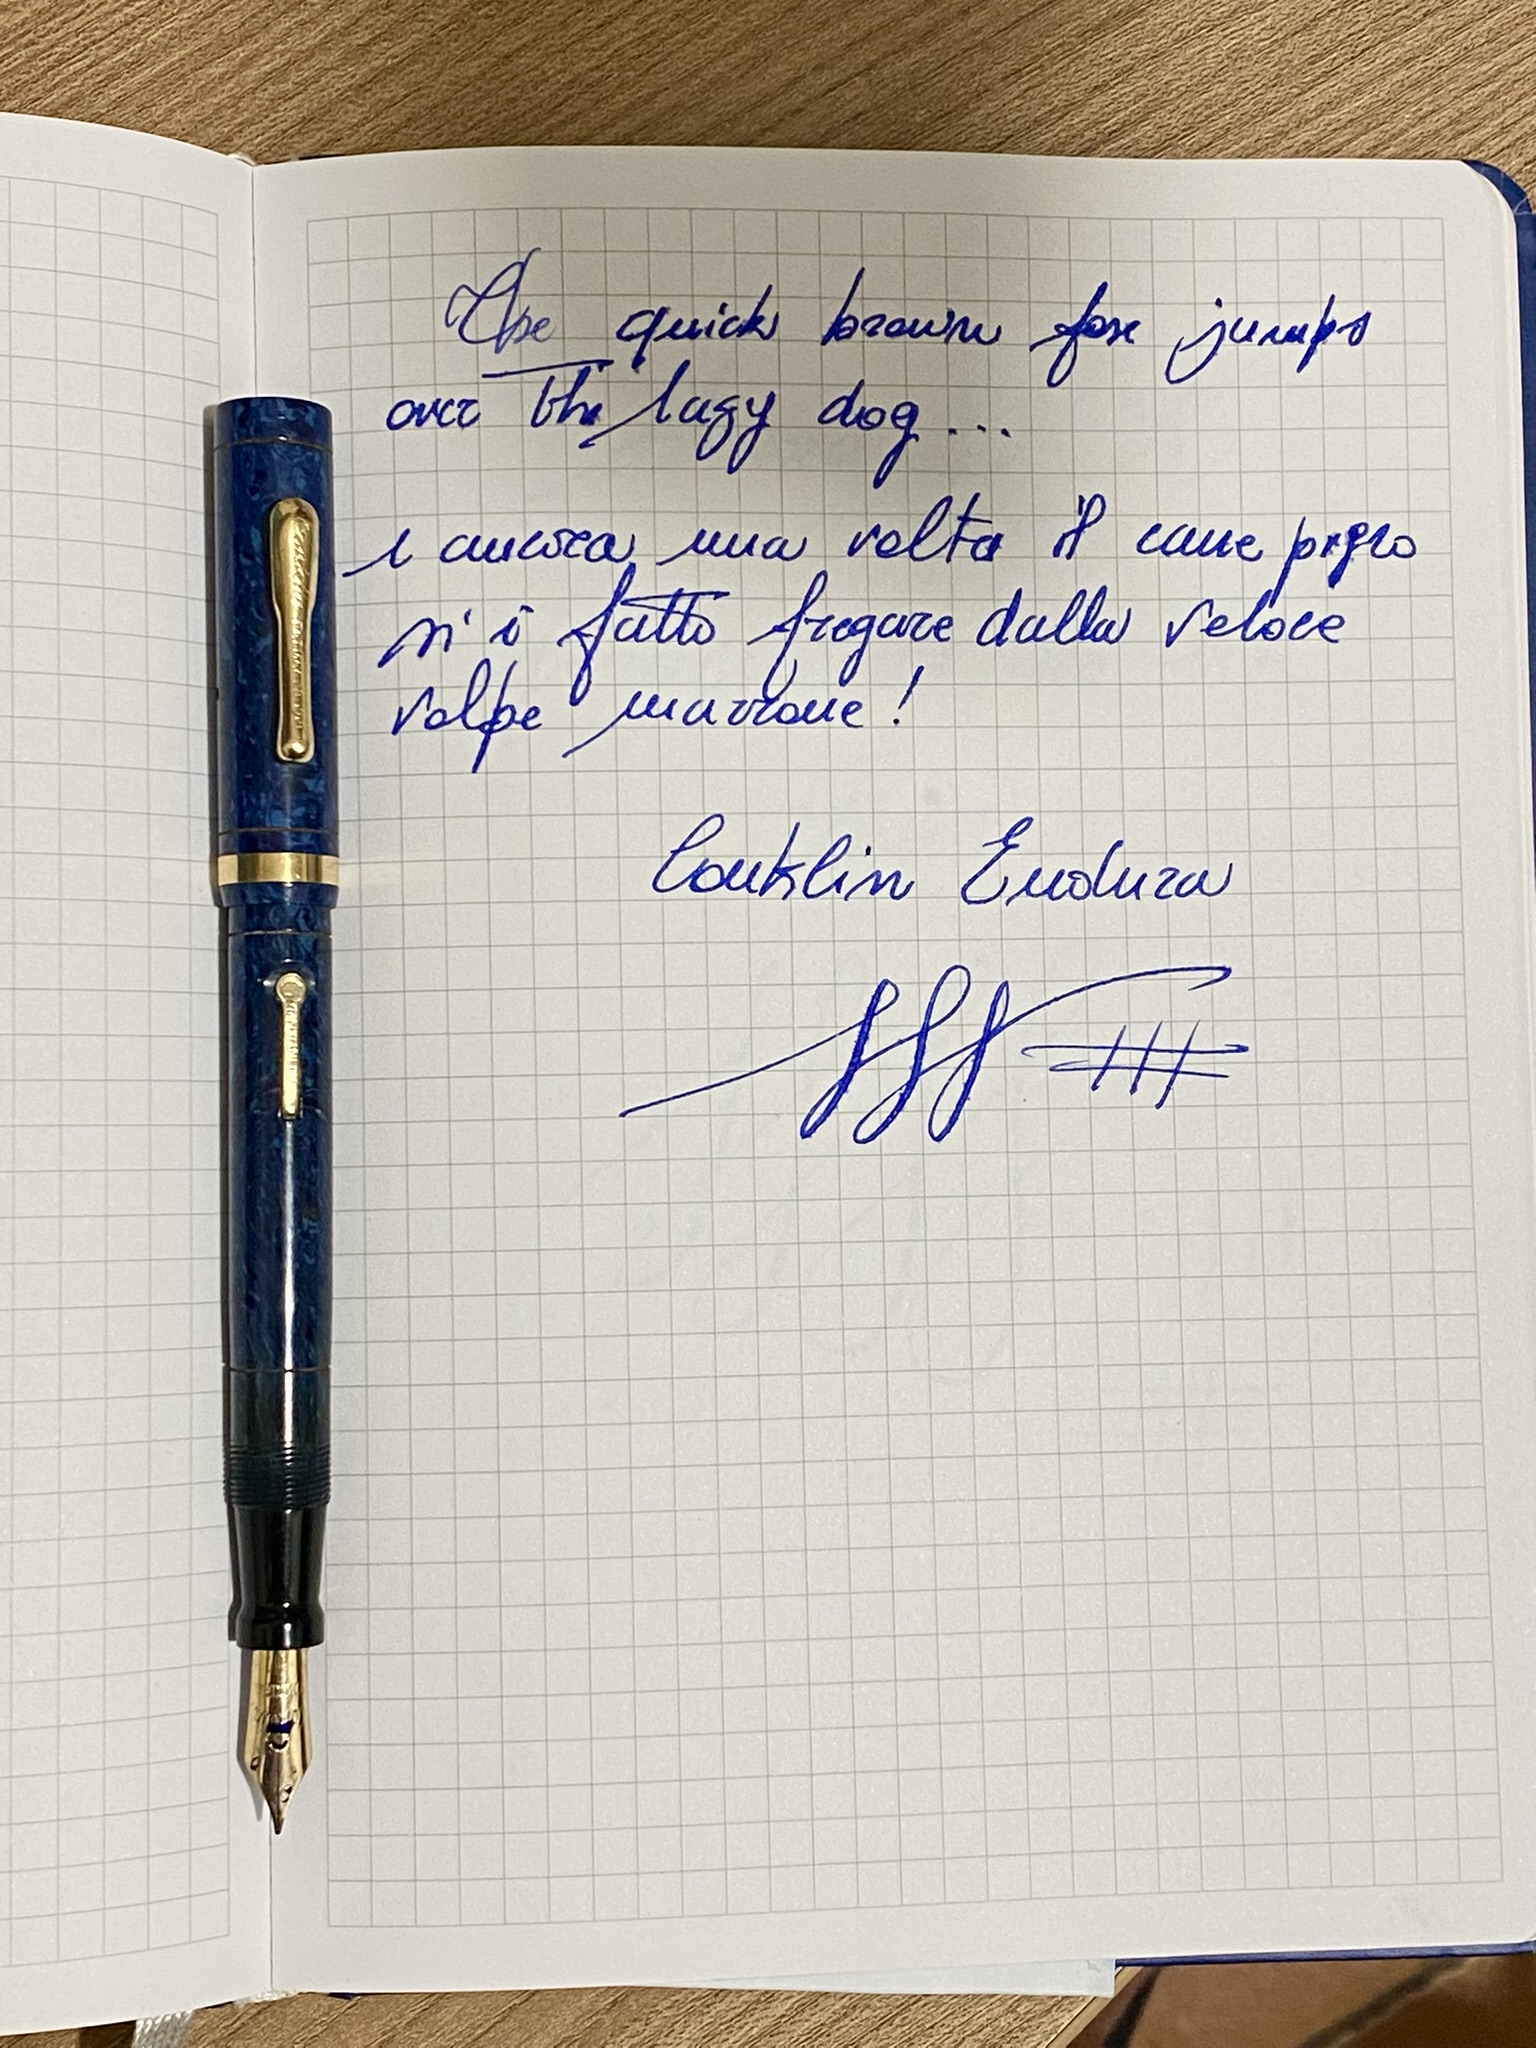 The quick brown fox jumps
over the lazy dog...
e ancora una volta il cane pigro
si è fatto fregare dalla veloce
volpe marrone!
Conklin Endura